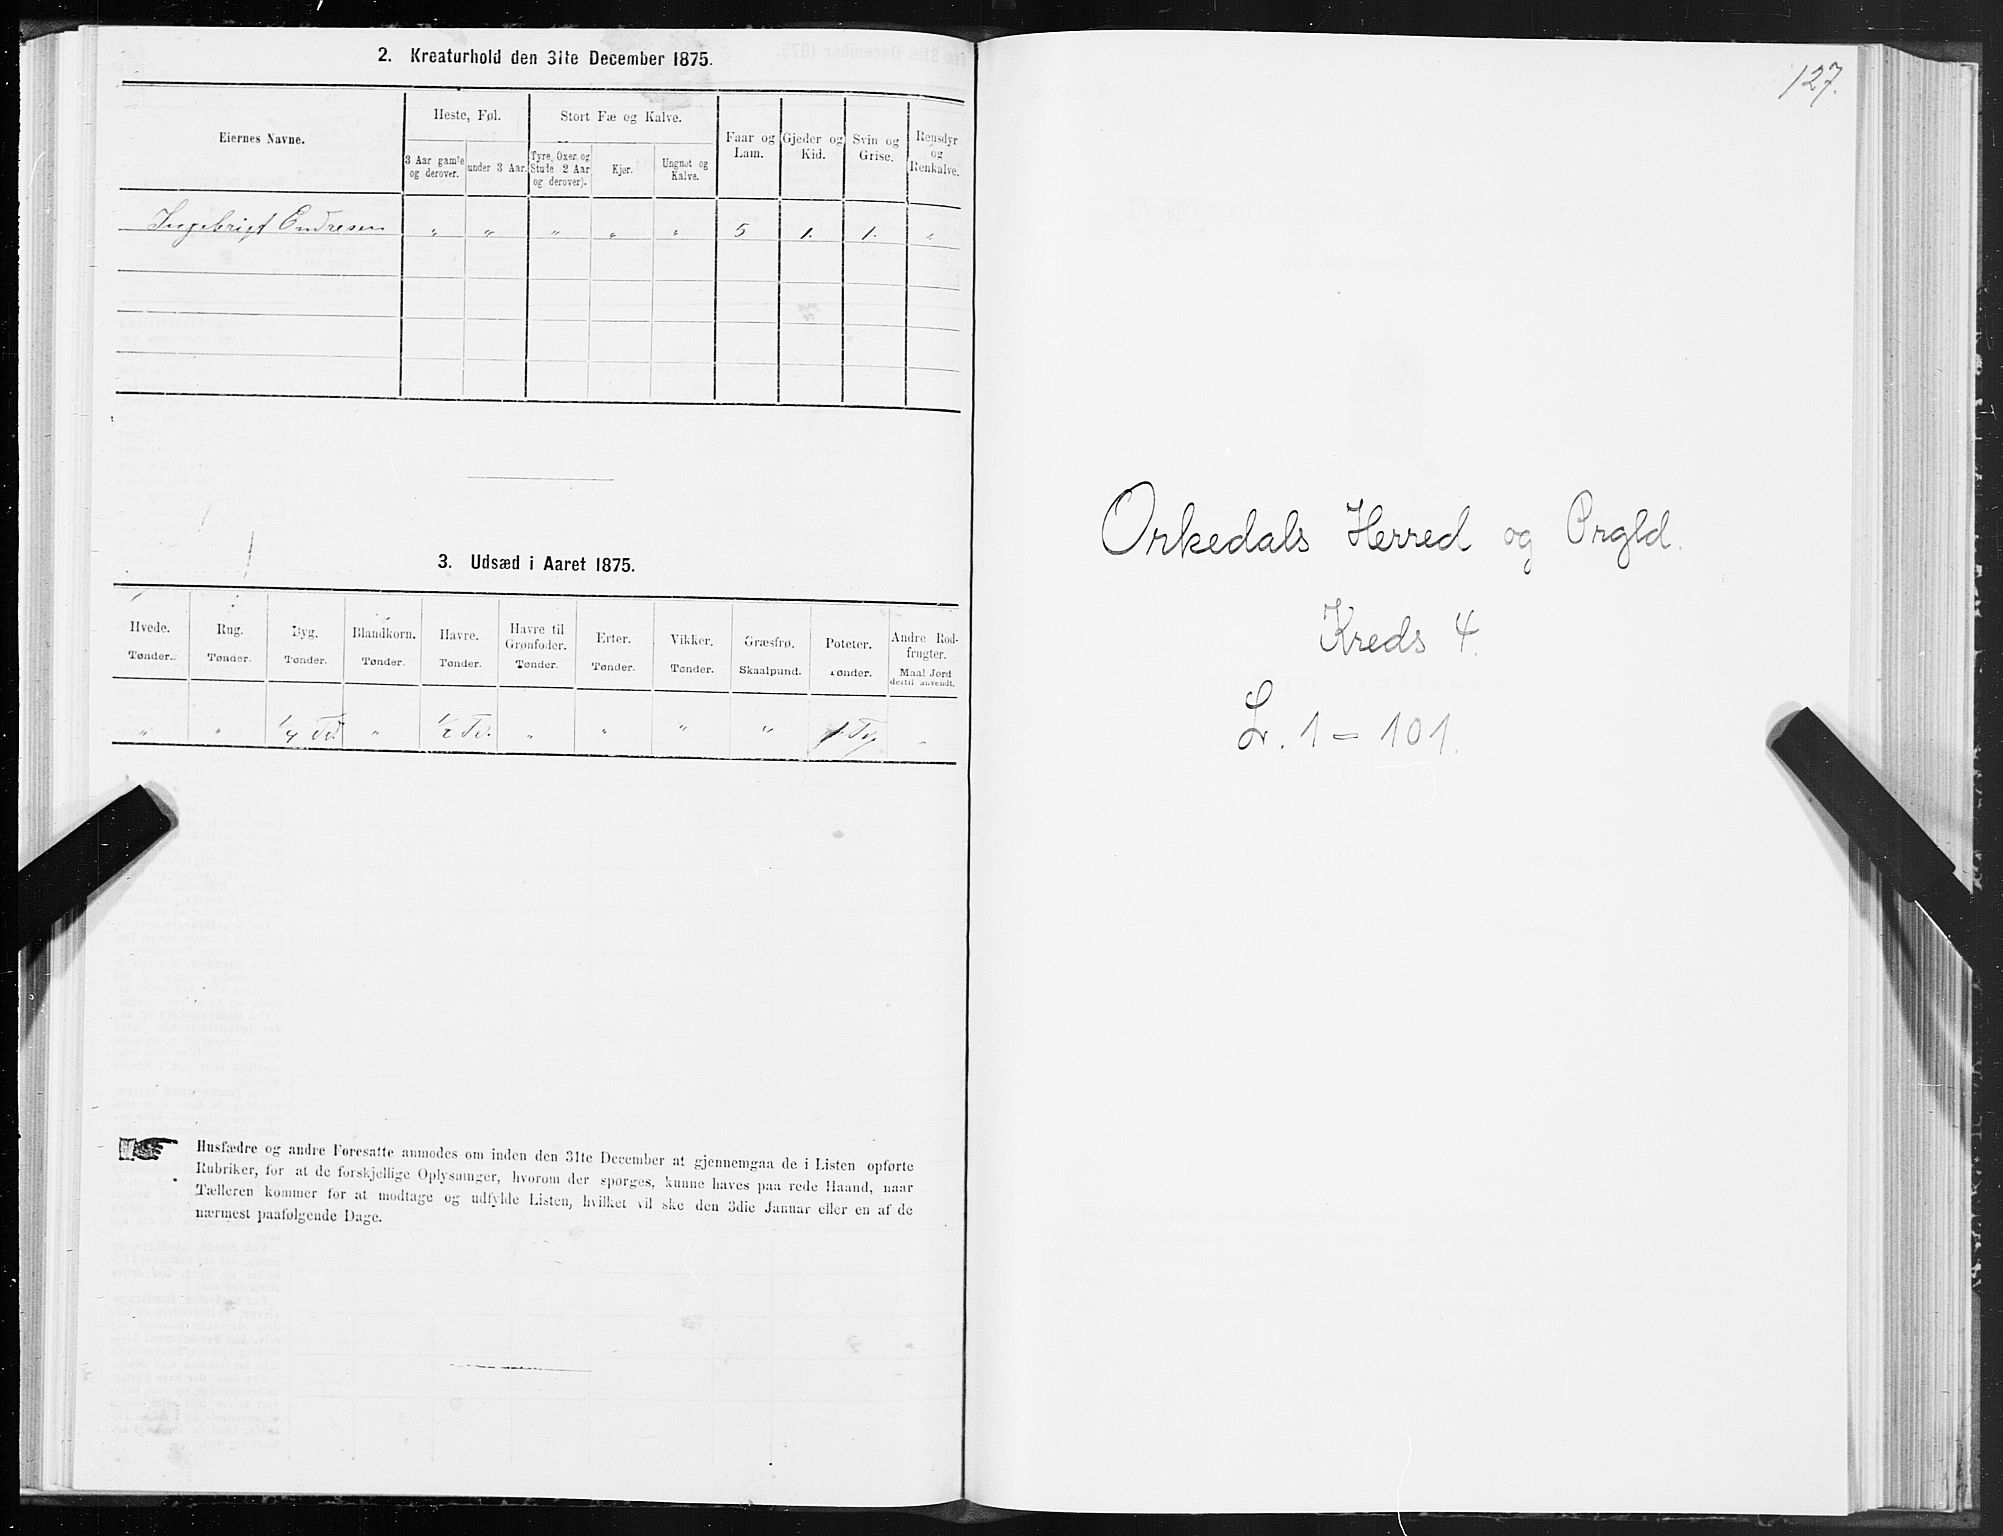 2. Kreaturhold den 31te December 1875.
Eiernes Navne.
Heste, Føl.
Stort Fæ og Kalve.
Faar og Lam.
Gjeder og Kid.
Svin og Grise.
Rensdyr og Renkalve.
3 Aar gamle og derover.
under 3 Aar.
Tyre, Oxer og Stude 2 Aar og derover).
Kjør.
Ungnøt og Kalve.
Ingebrigt Endresen " " " " " 5 1. 1. "
3. Udsæd i Aaret 1875.
Hvede. Rug. Byg. Blandkorn. Havre. Havre til Grønfoder. Erter. Vikker. Græsfrø. Poteter. Andre Rodfrugter.
Tønder. Tønder. Tønder. Tønder. Tønder. Tønder. Tønder. Tønder. Skaalpund. Tønder. Maal Jord dertil anvendt.
" " 1/4 Td. " 1/2 Td. " " " " 1 Td. "
Husfædre og andre Foresatte anmodes om inden den 31te December at gjennemgaa de i Listen opførte
Rubriker, for at de forskjellige Oplysninger, hvorom der spørges, kunne haves paa rede Haand, naar
Tælleren kommer for at modtage og udfylde Listen, hvilket vil ske den 3die Januar eller en af de
nærmest paafølgende Dage.
127.
Orkedals Herred og Prgld.
Kreds 4.
L. 1 - 101.